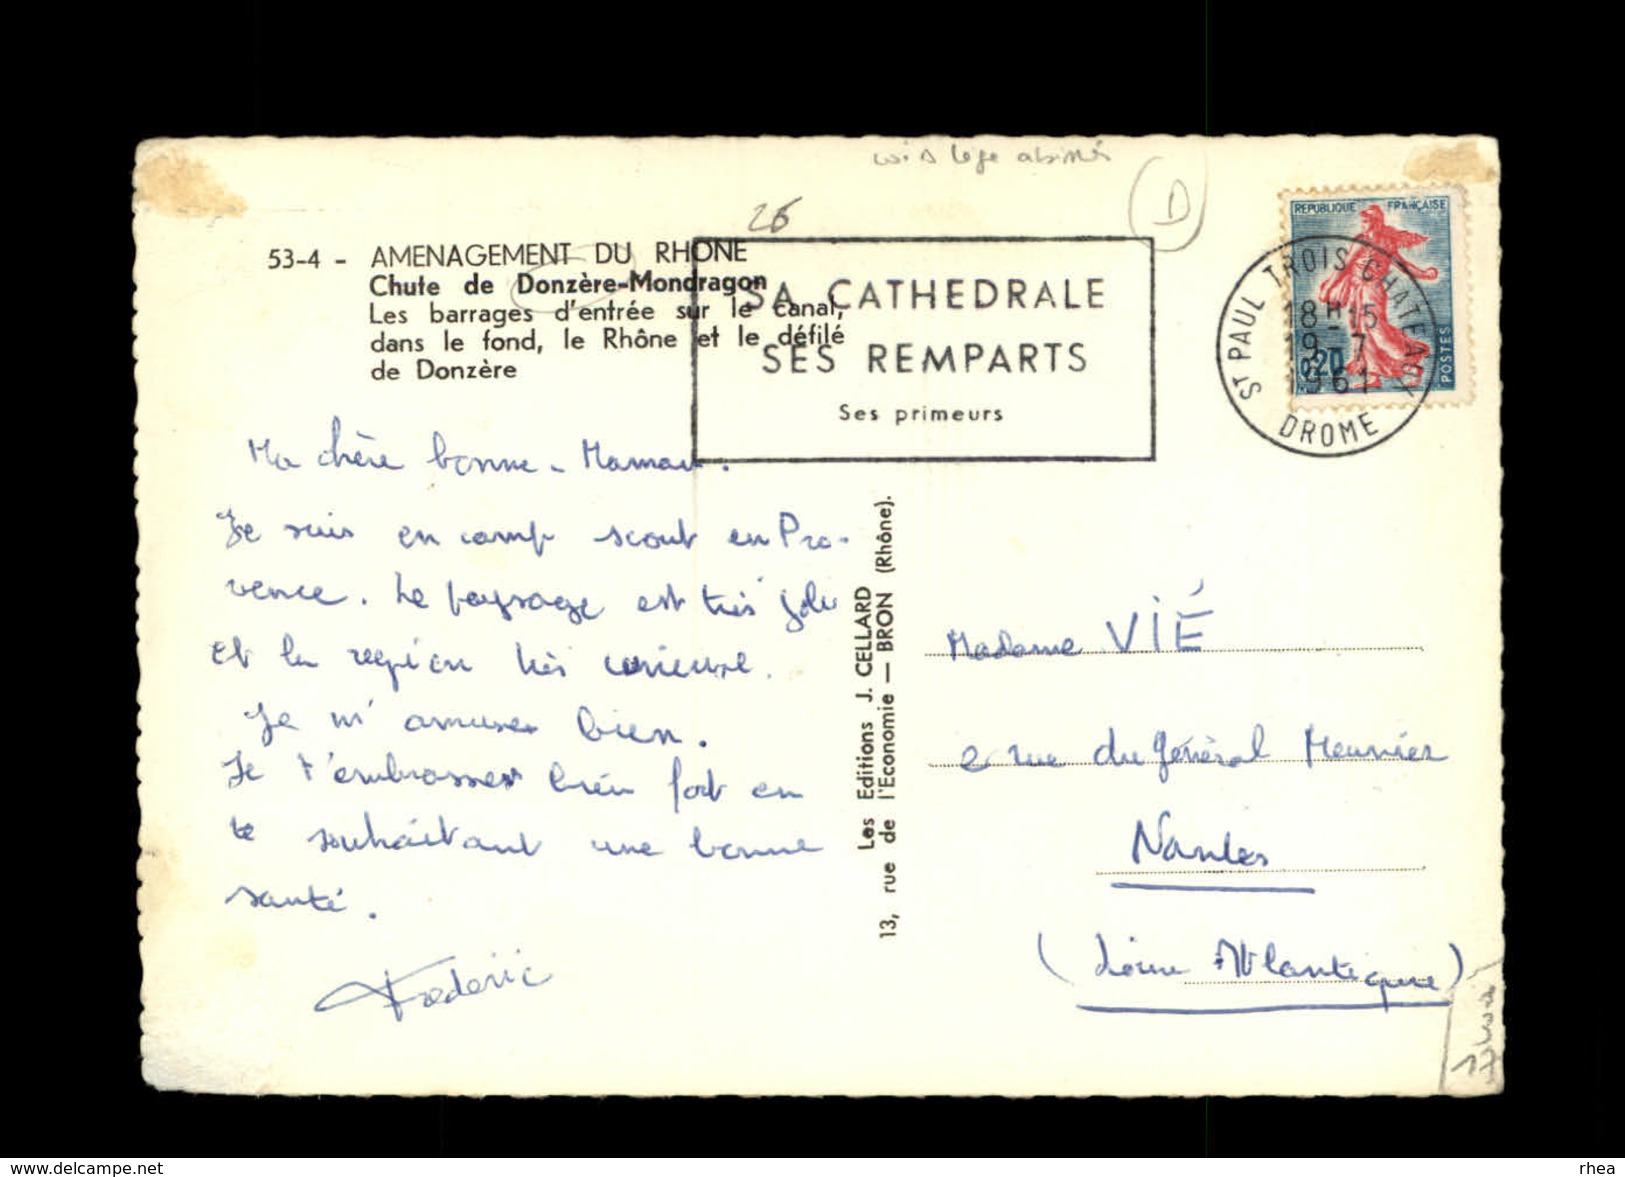 26
D
53-4 - AMENAGEMENT DU RHONE
Chute de Donzère-Mondragon
Les barrages d'entrée sur le canal,
dans le fond, le Rhône et le défilé
de Donzère
SA CATHEDRALE
SES REMPARTS
Ses primeurs
REPUBLIQUE FRANÇAISE
POSTES
0,20
ST PAUL TROIS CHATEAUX
18H15
19-7
1961
DROME
Ma chère bonne-Maman.
Je suis en camp scout en Pro-
vence. Le paysage est très joli
et la région très curieuse.
Je m'amuse bien.
Je t'embrasse bien fort en
te souhaitant une bonne
santé.
Frederic
Les Editions J. CELLARD
13, rue de l'Economie — BRON (Rhône).
Madame VIÉ
2 rue du Général Meunier
Nantes
(Loire Atlantique)
www.delcampe.net
rhea